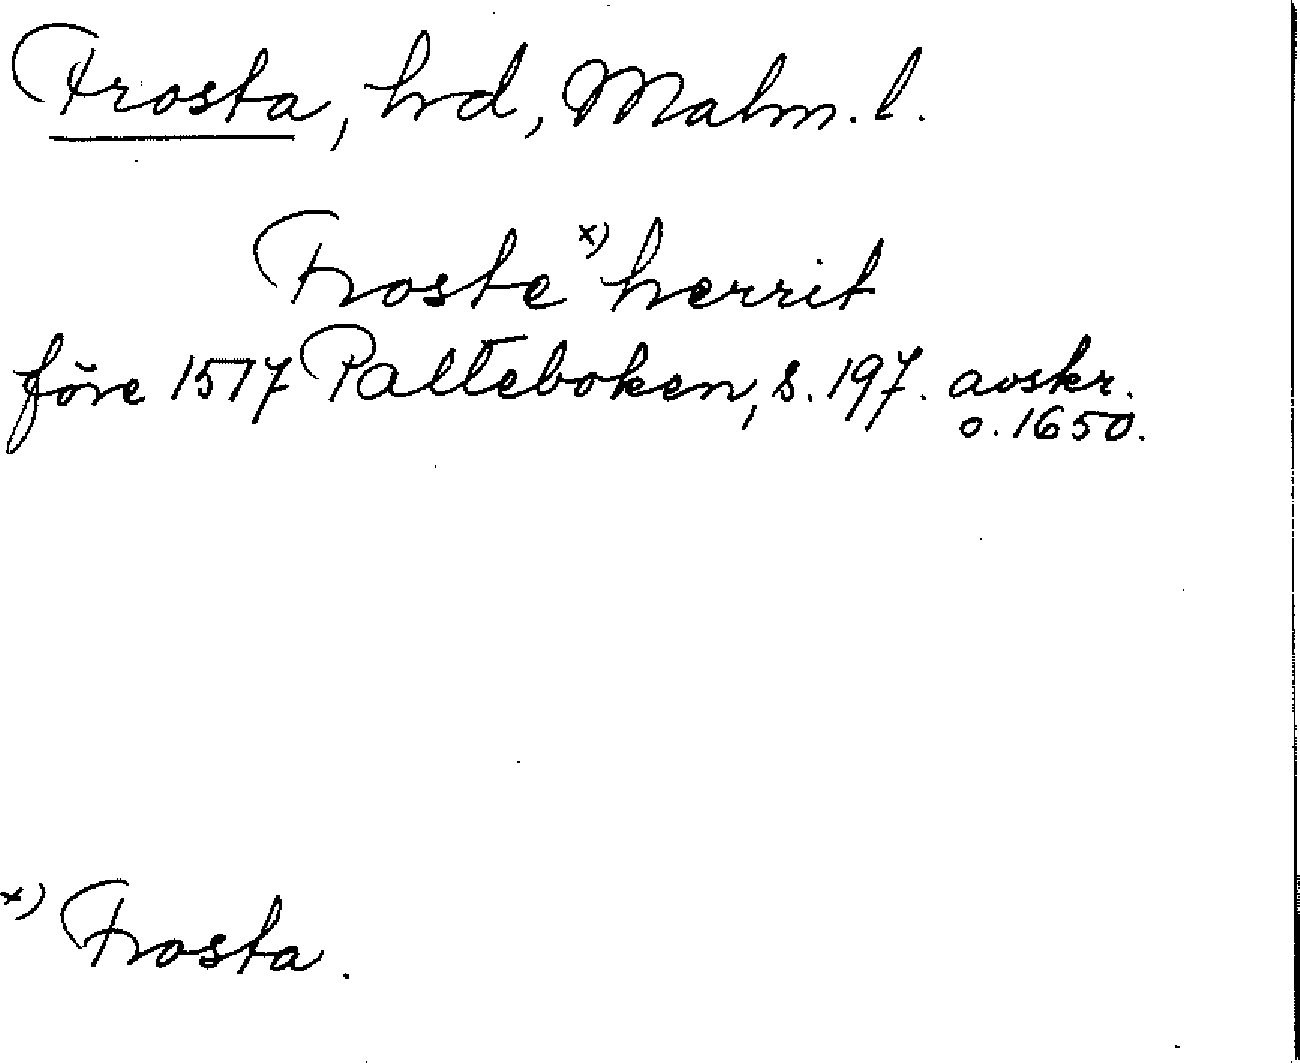 Frosta, hd, Malm. l.
Froste x) herrit
före 1517 Palteboken, s. 197. avskr.
o. 1650.
x) Frosta.